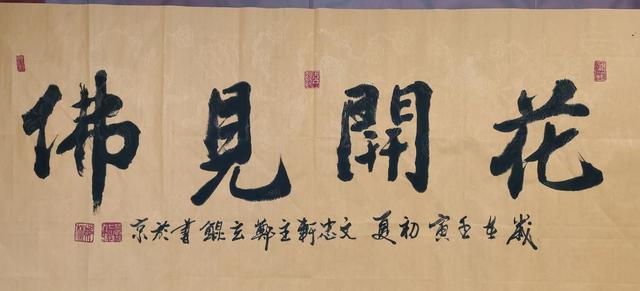 花開見佛
歲在壬寅初夏文忠軒主鄭玄鯤書於京